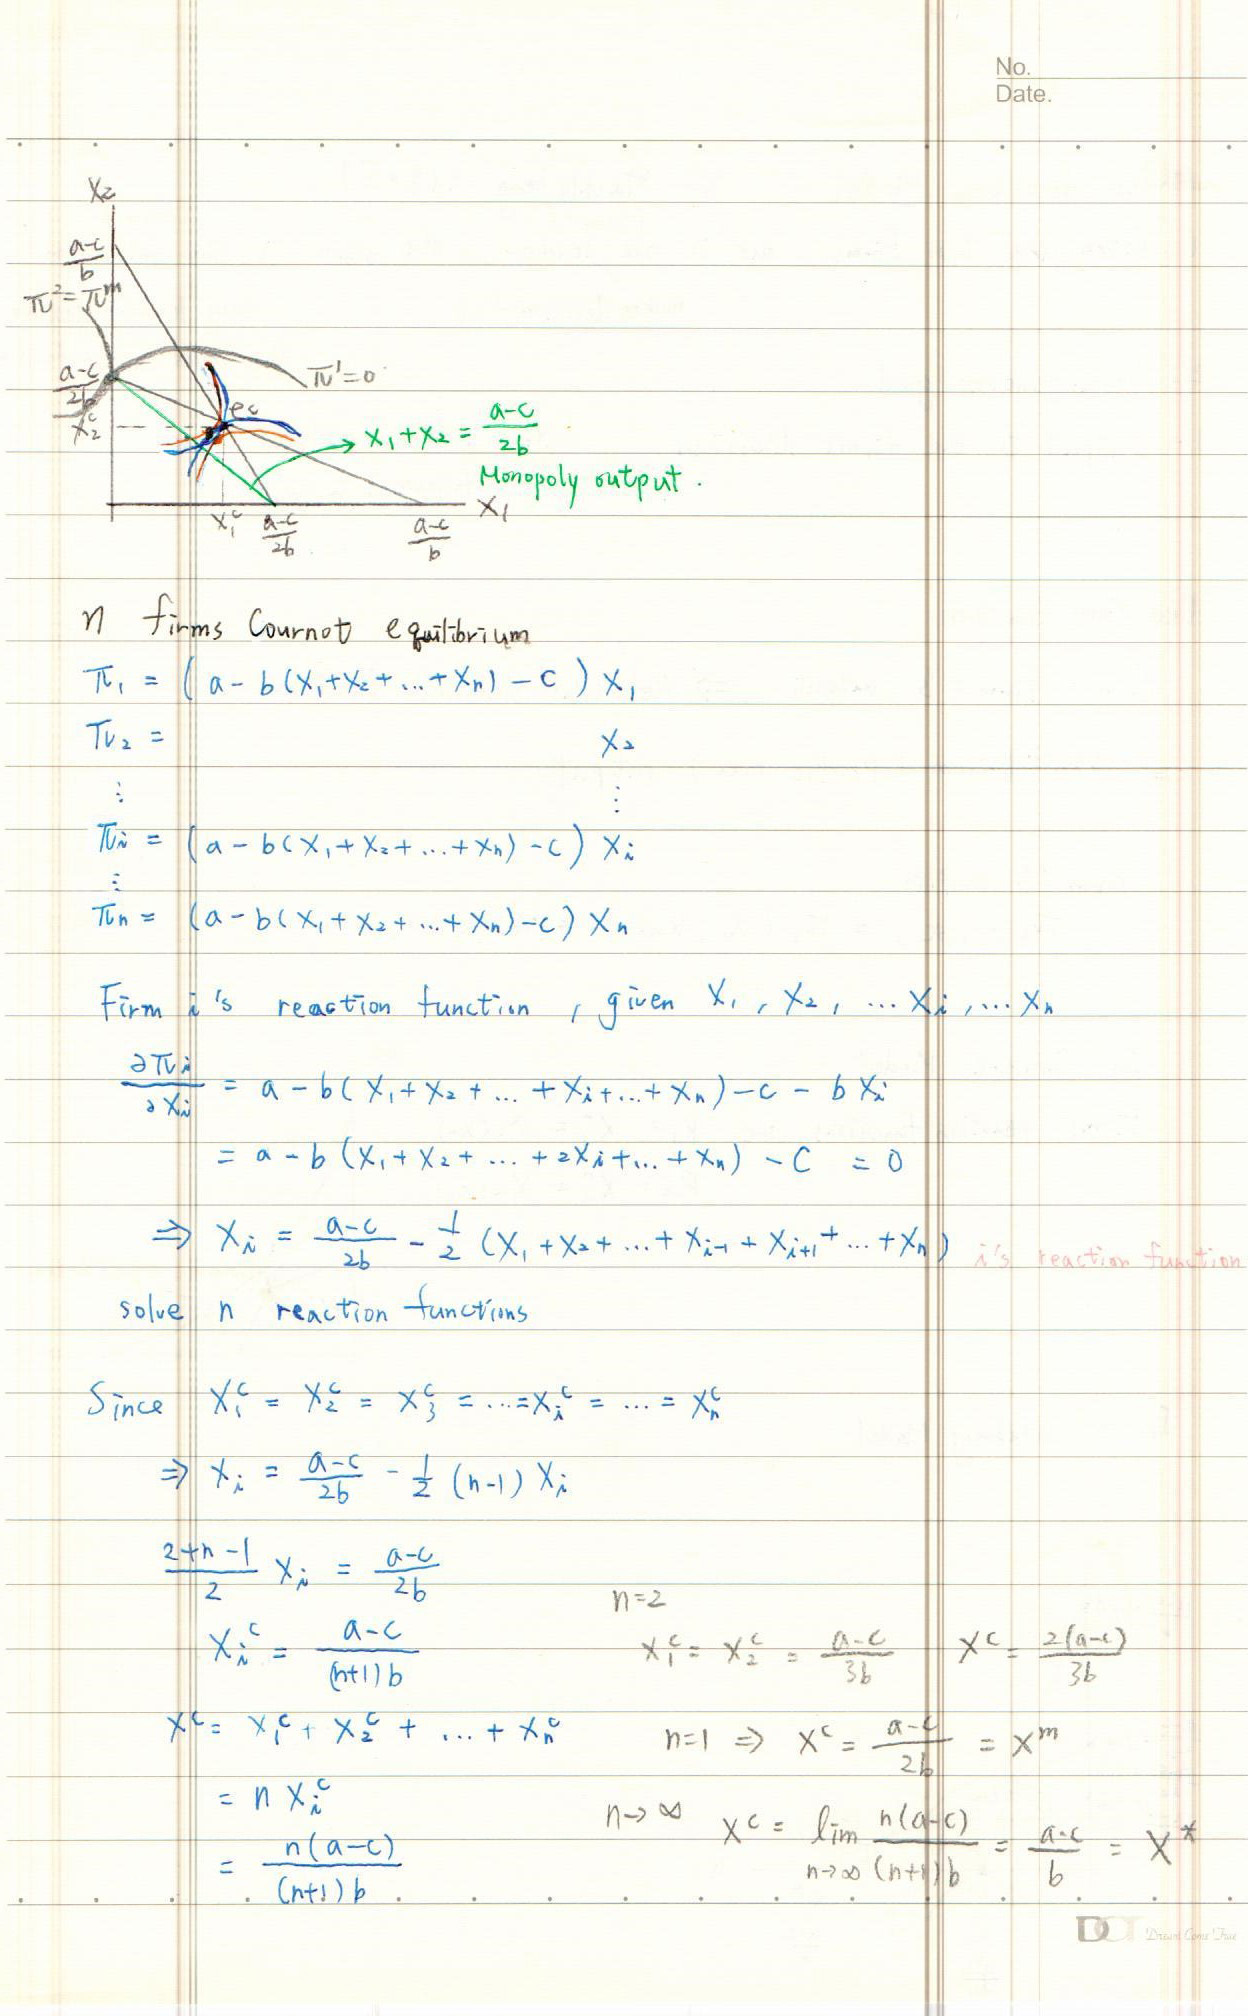 No.
Date.
X₂
a-c/b
π²=πᵐ
a-c/2b
π¹=0
X₂ᶜ
eᶜ
X₁+X₂ = a-c/2b
Monopoly output.
X₁ᶜ a-c/2b a-c/b X₁
n firms Cournot equilibrium
π₁ = (a-b(X₁+X₂+...+Xₙ)-c) X₁
π₂ = X₂
⋮ ⋮
πᵢ = (a-b(X₁+X₂+...+Xₙ)-c) Xᵢ
⋮
πₙ = (a-b(X₁+X₂+...+Xₙ)-c) Xₙ
Firm i's reaction function, given X₁, X₂, ... Xᵢ, ... Xₙ
∂πᵢ/∂Xᵢ = a-b(X₁+X₂+...+Xᵢ+...+Xₙ)-c-bXᵢ
= a-b(X₁+X₂+...+2Xᵢ+...+Xₙ)-c = 0
⇒ Xᵢ = a-c/2b - 1/2 (X₁+X₂+...+Xᵢ₋₁+Xᵢ₊₁+...+Xₙ) i's reaction function
solve n reaction functions
Since X₁ᶜ = X₂ᶜ = X₃ᶜ = ...=Xᵢᶜ = ... = Xₙᶜ
⇒ Xᵢ = a-c/2b - 1/2 (n-1) Xᵢ
2+n-1/2 Xᵢ = a-c/2b
Xᵢᶜ = a-c/(n+1)b
Xᶜ = X₁ᶜ + X₂ᶜ + ... + Xₙᶜ
= n Xᵢᶜ
= n(a-c)/(n+1)b
n=2
X₁ᶜ = X₂ᶜ = a-c/3b Xᶜ = 2(a-c)/3b
n=1 ⇒ Xᶜ = a-c/2b = Xᵐ
n→∞ Xᶜ = lim n→∞ n(a-c)/(n+1)b = a-c/b = X*
DOT Dream Come True